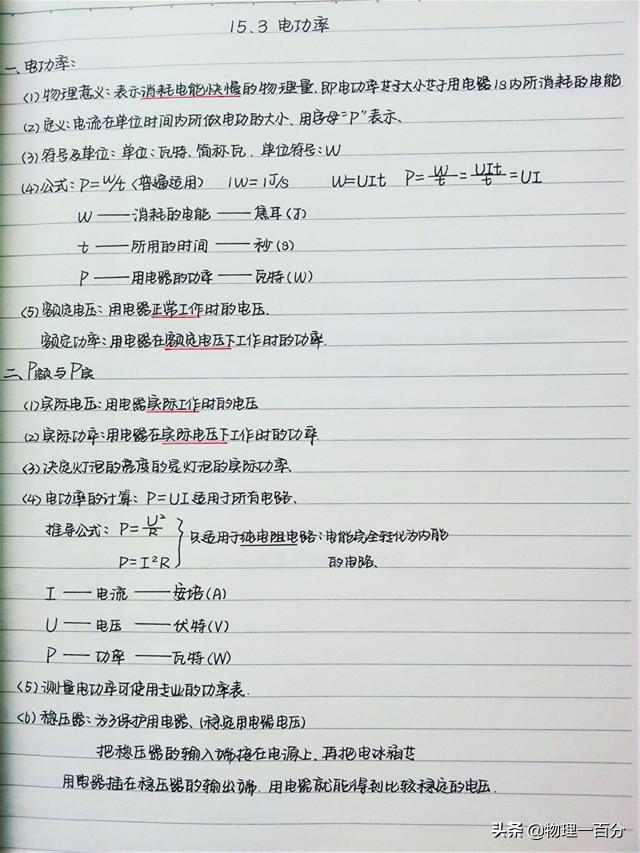 15.3 电功率
一、电功率:
(1)物理意义:表示消耗电能快慢的物理量,即电功率大小等于用电器1s内所消耗的电能
(2)定义:电流在单位时间内所做电功的大小、用字母"P"表示、
(3)符号及单位:单位:瓦特、简称瓦、单位符号:W
(4)公式:P=W/t(普遍适用) 1W=1J/s W=UIt P=W/t=UIt/t=UI
W——消耗的电能——焦耳(J)
t——所用的时间——秒(s)
P——用电器的功率——瓦特(W)
(5)额定电压:用电器正常工作时的电压.
额定功率:用电器在额定电压下工作时的功率.
二、P额与P实
(1)实际电压:用电器实际工作时的电压
(2)实际功率:用电器在实际电压下工作时的功率
(3)决定灯泡的亮度的是灯泡的实际功率、
(4)电功率的计算:P=UI适用于所有电路、
推导公式:P=U²/R
P=I²R
}只适用于纯电阻电路:电能完全转化为内能
的电路、
I——电流——安培(A)
U——电压——伏特(V)
P——功率——瓦特(W)
(5)测量电功率可使用专业的功率表.
(6)稳压器:为了保护用电器、(稳定用电器电压)
把稳压器的输入端接在电源上,再把电冰箱等
用电器插在稳压器的输出端,用电器就能得到比较稳定的电压.
头条 @物理一百分